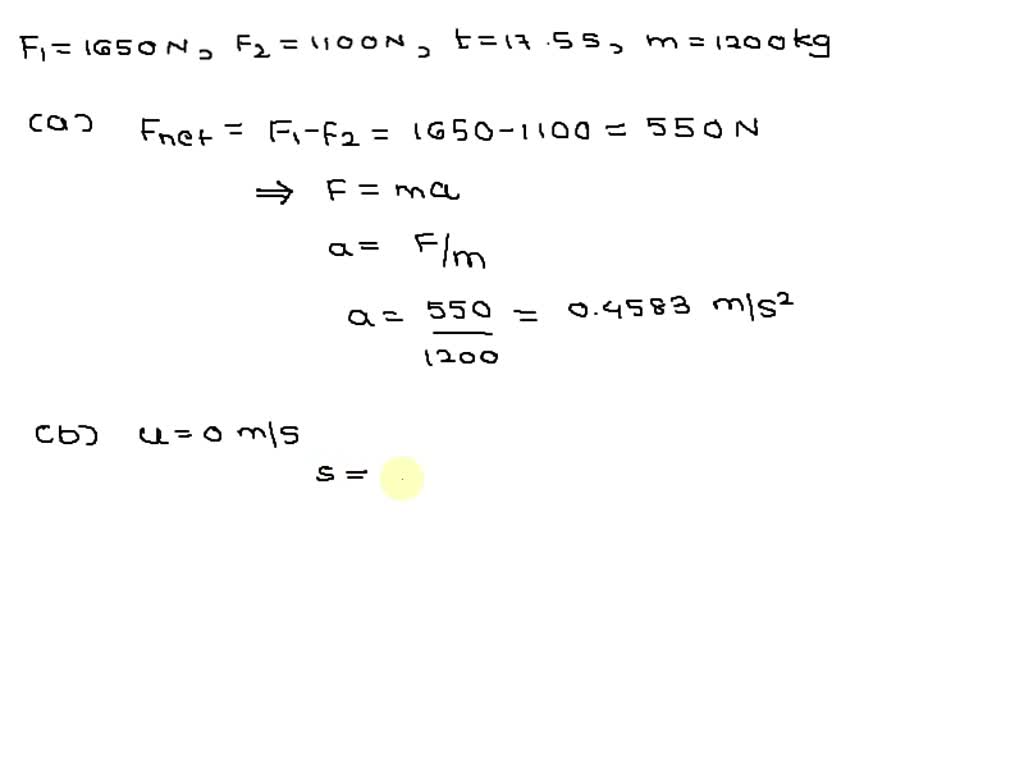 F₁ = 1650 N, F₂ = 1100 N, t = 17.5 s, m = 1200 kg
(a) Fnet = F₁ - F₂ = 1650 - 1100 = 550 N
⇒ F = ma
a = F/m
a = 550/1200 = 0.4583 m/s²
(b) u = 0 m/s
s =